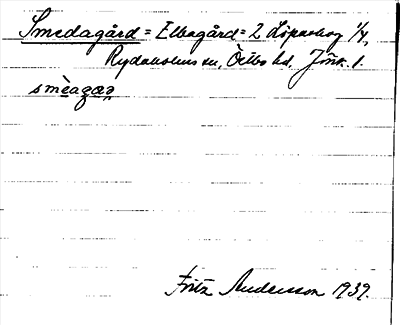 Smedagård = Elbagård = 2 Löpaskog 1/4,
Rydaholms sn, Östbo hd. Jönk. l.
smèagaɐn
Fritz Andersson 1939.